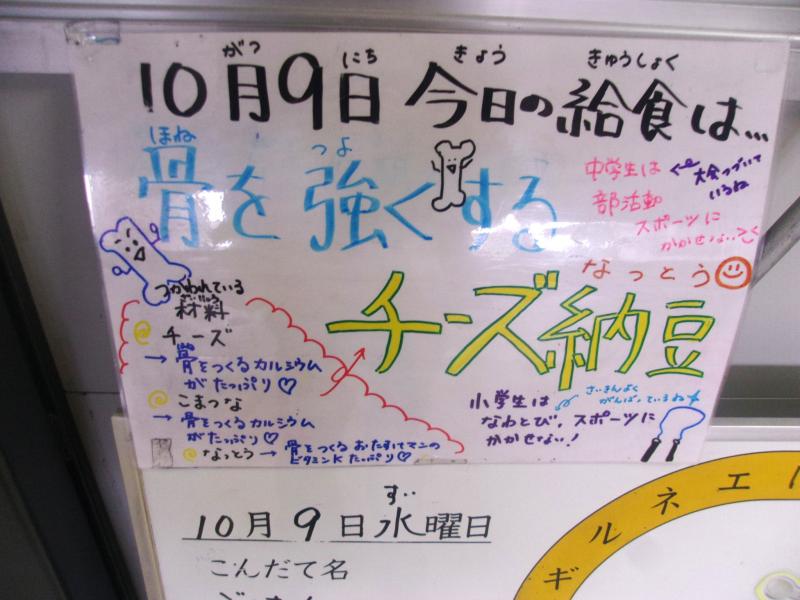 がつ にち きょう きゅうしょく
10月9日 今日の給食は...
ほね つよ
骨を強くする
中学生は
部活動
スポーツに
かかせない
大会つづいて
いるね
なっとう
チーズ納豆
つかわれている
ざいりょう
材料
チーズ
→ 骨をつくるカルシウム
がたっぷり♡
こまつな
→ 骨をつくるカルシウム
がたっぷり♡
なっとう → 骨をつくるおたすけマンの
ビタミンKたっぷり♡
小学生は
さいきんよく
がんばっているね
なわとび、スポーツに
かかせない!
すい
10月9日水曜日
こんだて名
ギルネエ